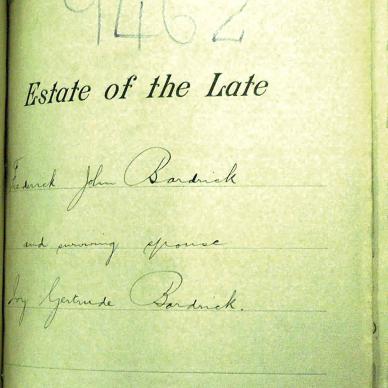 9462
Estate of the Late
Frederick John Bardrick
and surviving spouse
Ivy Gertrude Bardrick.